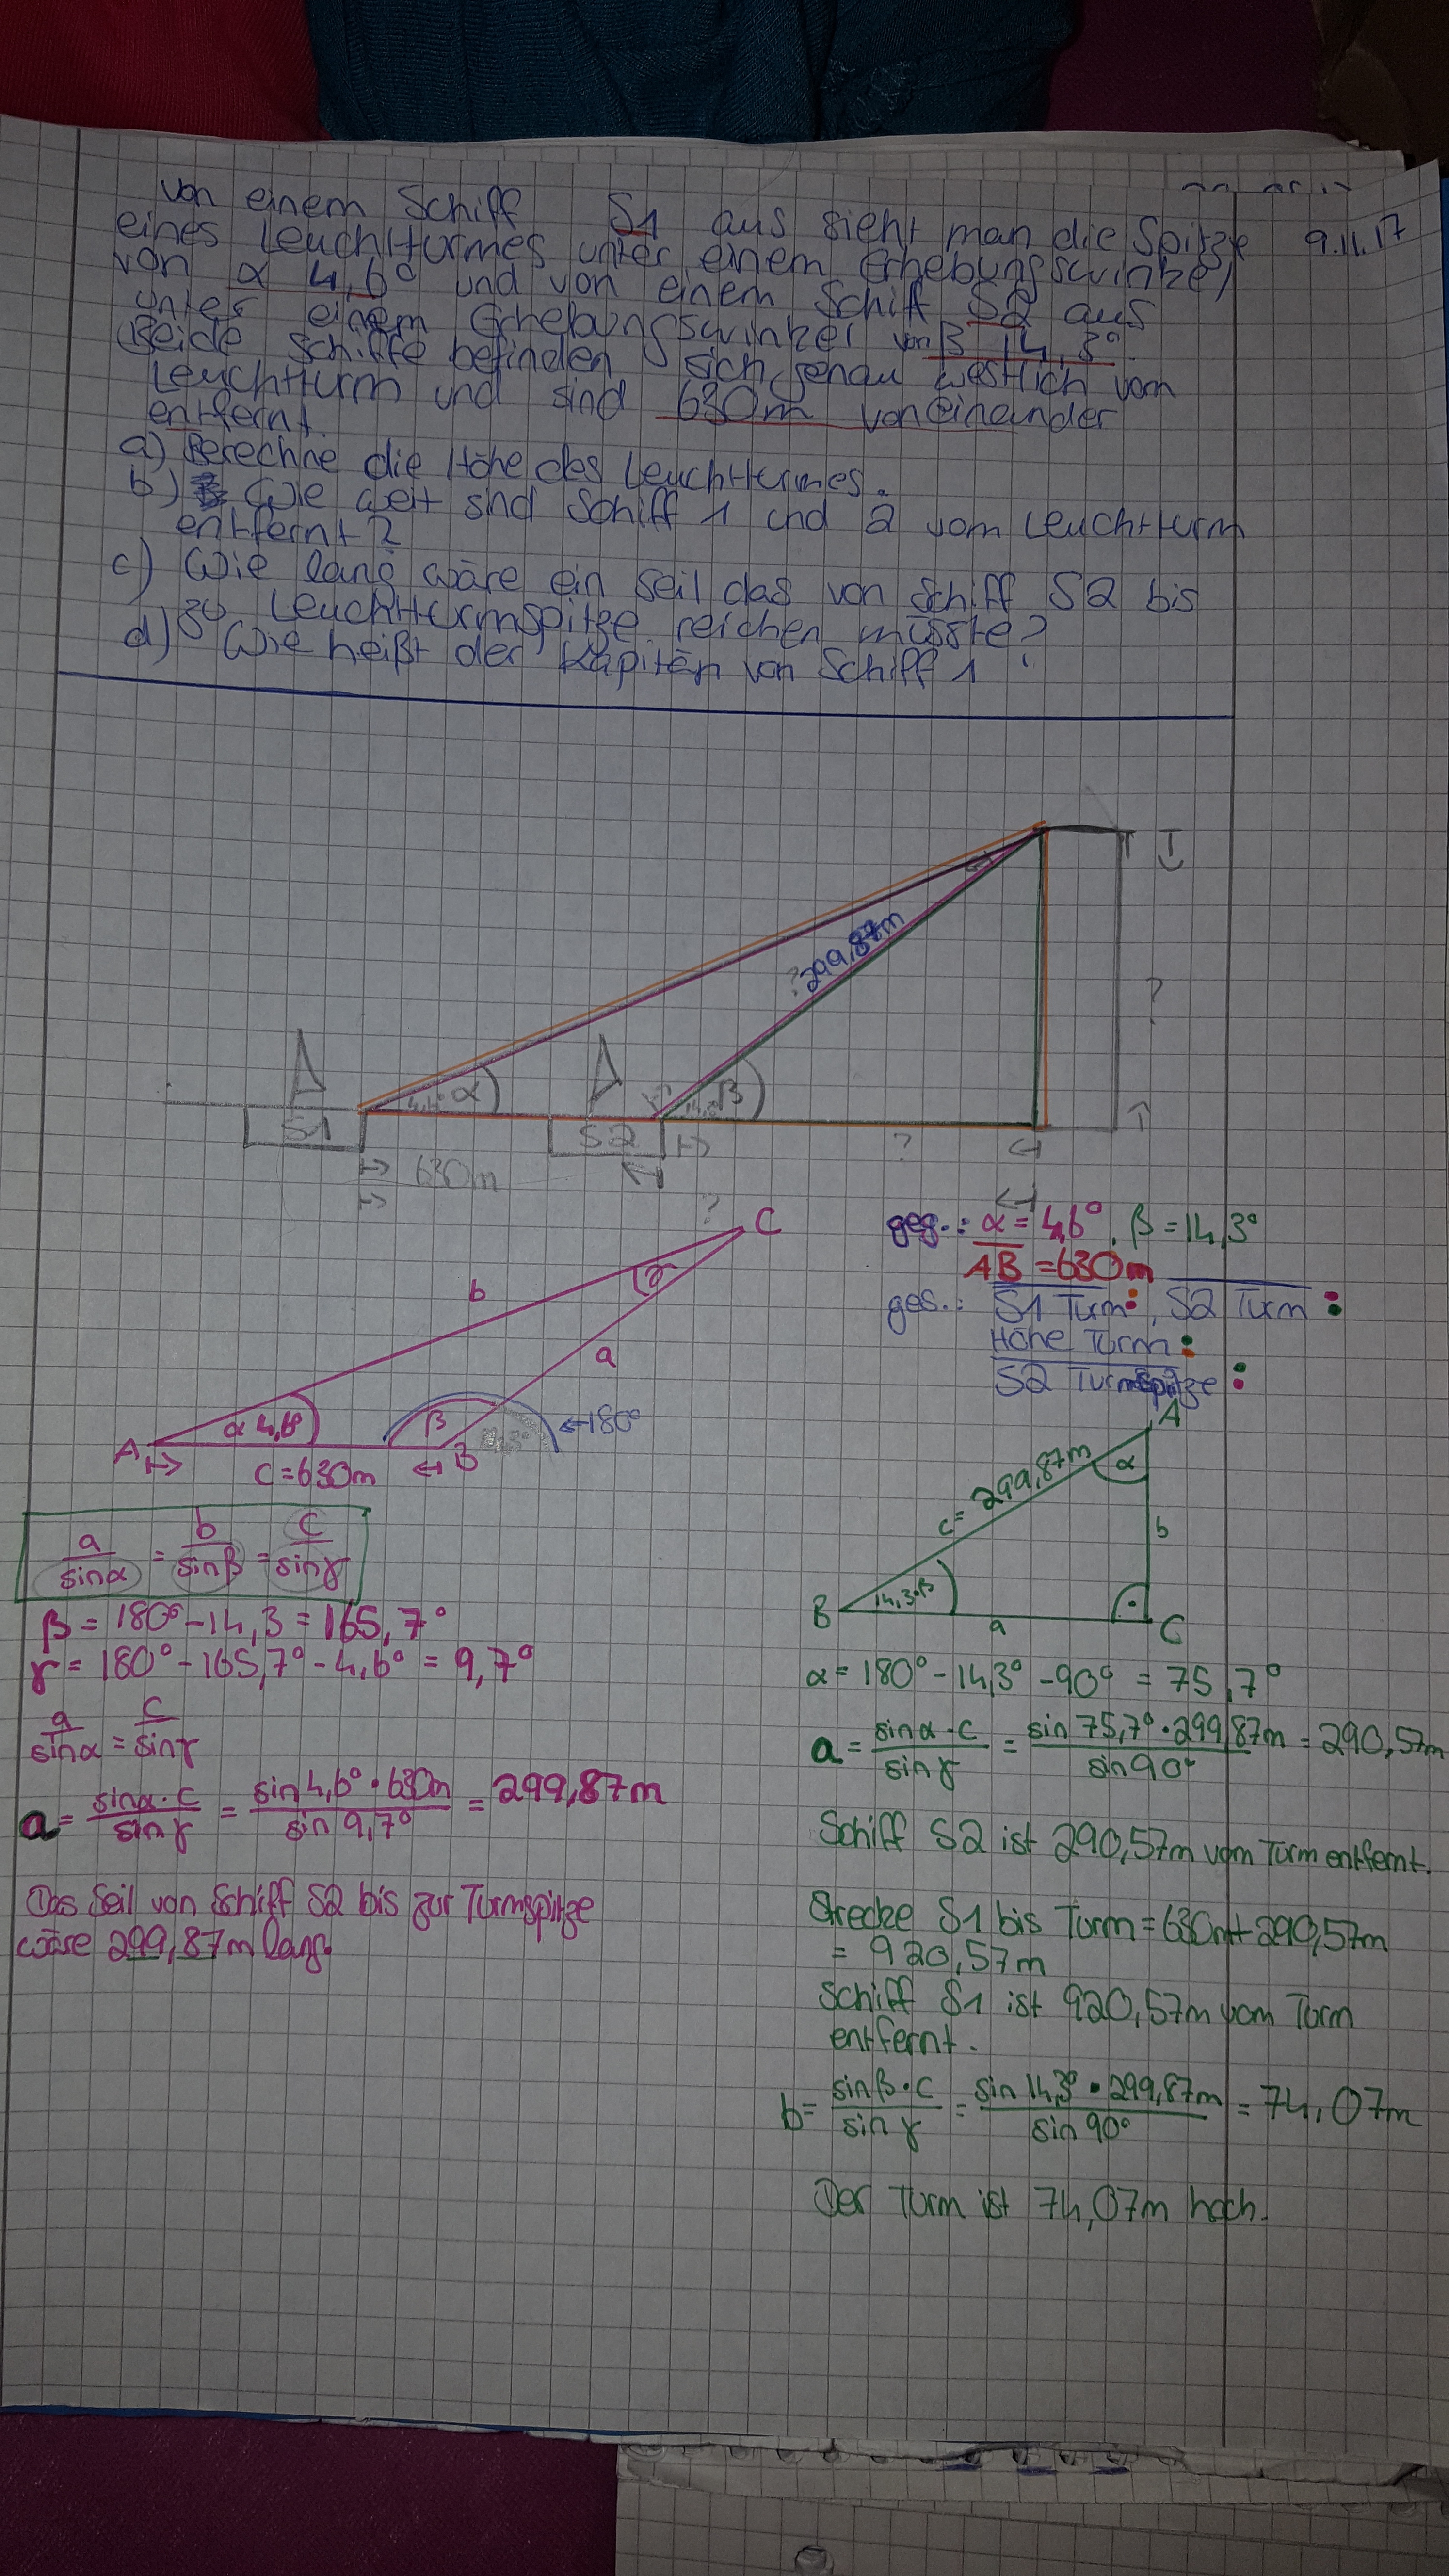 von einem Schiff S1 aus sieht man die Spitze
9.11.17
eines Leuchtturmes unter einem Erhebungswinkel
von α 4,6° und von einem Schiff S2 aus
unter einem Erhebungswinkel von β 14,3°.
Beide Schiffe befinden sich genau westlich vom
Leuchtturm und sind 630m voneinander
entfernt.
a) Berechne die Höhe des Leuchtturmes.
b) Wie weit sind Schiff 1 und 2 vom Leuchtturm
entfernt?
c) Wie lang wäre ein Seil das von Schiff S2 bis
zu Leuchtturmspitze reichen müsste?
d) Wie heißt der Kapitän von Schiff 1?
? 299,87m
?
4,6° α
14,3° β
S1
S2
?
630m
?
C
geg.: α = 4,6°, β = 14,3°
AB = 630m
b
γ
ges.: S1 Turm:, S2 Turm:
Höhe Turm:
a
S2 Turmspitze:
α 4,6°
β
←180°
A
B
c = 630m
A
c = 299,87m
α
b
14,3° β
B
a
C
a/sinα = b/sinβ = c/sinγ
β = 180° - 14,3 = 165,7°
γ = 180° - 165,7° - 4,6° = 9,7°
a/sinα = c/sinγ
a = sinα · c/sinγ = sin 4,6° · 630m/sin 9,7° = 299,87m
Das Seil von Schiff S2 bis zur Turmspitze
wäre 299,87m lang.
α = 180° - 14,3° - 90° = 75,7°
a = sinα · c/sinγ = sin 75,7° · 299,87m/sin 90° = 290,57m
Schiff S2 ist 290,57m vom Turm entfernt.
Strecke S1 bis Turm = 630m + 290,57m
= 920,57m
Schiff S1 ist 920,57m vom Turm
entfernt.
b = sinβ · c/sinγ = sin 14,3° · 299,87m/sin 90° = 74,07m
Der Turm ist 74,07m hoch.